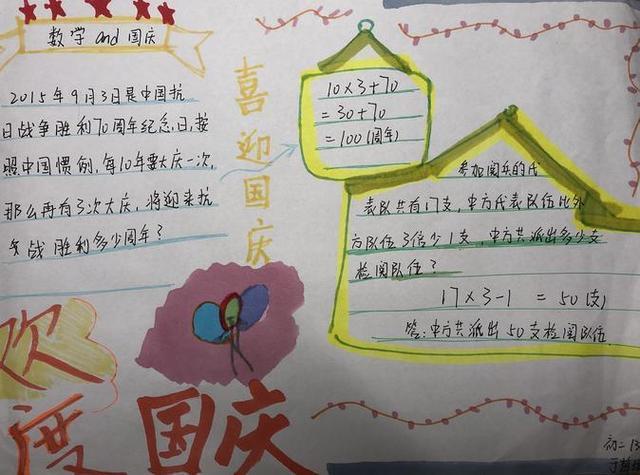 数学 and 国庆
2015年9月3日是中国抗
日战争胜利70周年纪念日,按
照中国惯例,每10年要大庆一次,
那么再有3次大庆,将迎来抗
战胜利多少周年?
喜迎国庆
10×3+70
=30+70
=100(周年)
参加阅兵的代
表队共有17支,中方代表队伍比外
方队伍3倍少1支,中方共派出多少支
检阅队伍?
17×3-1 =50(支)
答:中方共派出50支检阅队伍
欢
度国庆
初二13